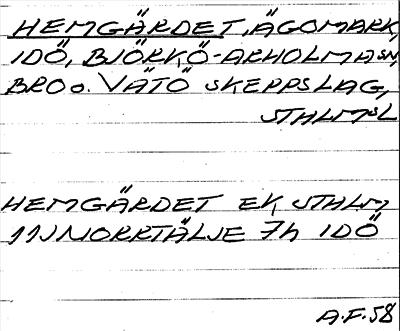 HEMGÄRDET, ÄGOMARK,
IDÖ, BJÖRKÖ-ARHOLMA SN,
BRO o. VÄTÖ SKEPPSLAG,
STHLMS L
HEMGÄRDET EK STHLM
11J NORRTÄLJE 7h IDÖ
A.F. 58